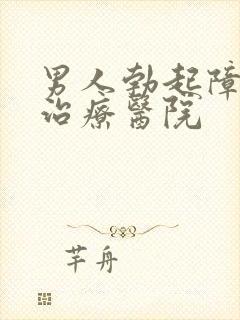 男人勃起障
治療醫院
芊舟